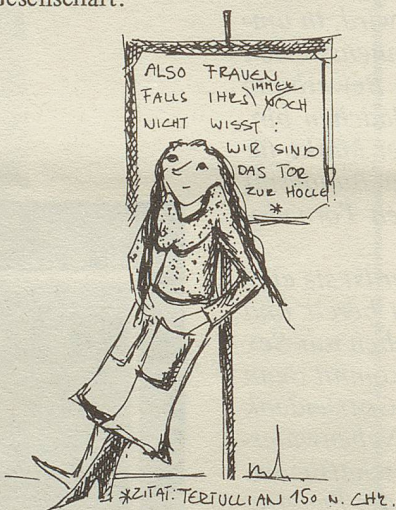 Gesellschaft.
ALSO FRAUEN
FALLS IHRS IMMER NOCH
NICHT WISST:
WIR SIND
DAS TOR
ZUR HÖLLE
*
*ZITAT: TERTULLIAN 150 N. CHR.